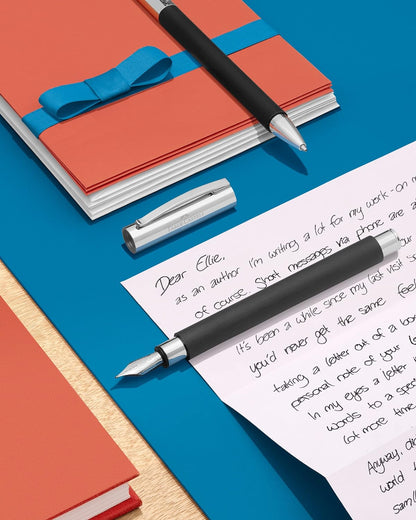 Dear Ellie,
as an author I'm writing a lot for my work - on m
of course. Short messages via phone are a
It's been a while since my last visit s
you'd never get the same feel
taking a letter out of a bo
personal note of your lo
In my eyes a letter
words to a spec
lot more time
Anyway, di
world t
sam(